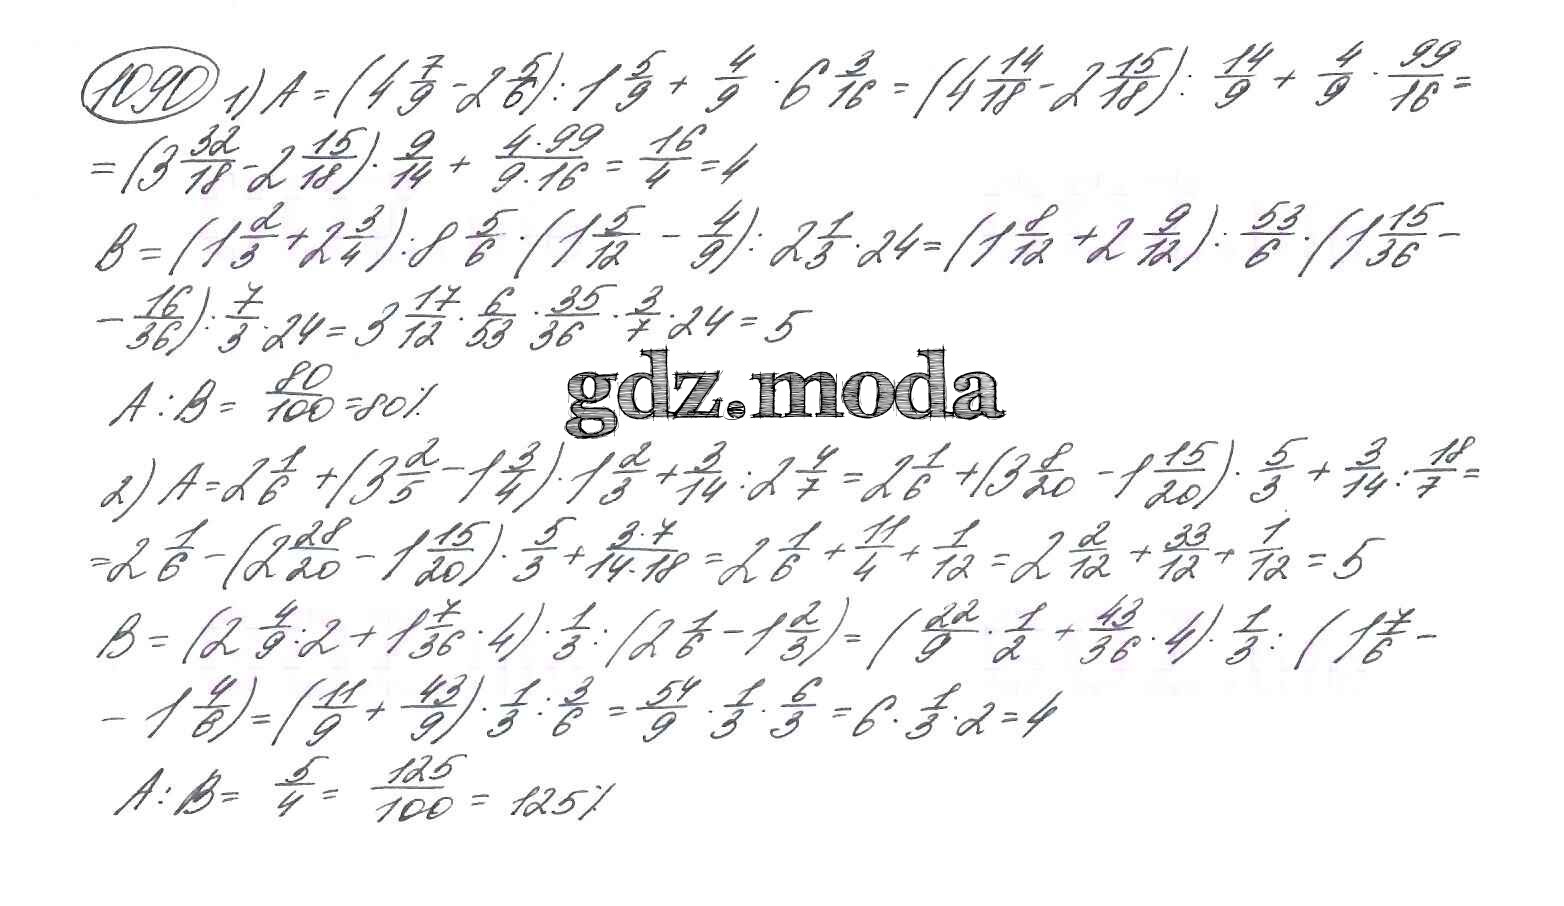 1090 1) A = (4 7/9 - 2 5/6) : 1 5/9 + 4/9 · 6 3/16 = (4 14/18 - 2 15/18) : 14/9 + 4/9 · 99/16 =
= (3 32/18 - 2 15/18) · 9/14 + 4·99/9·16 = 16/4 = 4
B = (1 2/3 + 2 3/4) : 8 5/6 · (1 5/12 - 4/9) : 2 1/3 · 24 = (1 8/12 + 2 9/12) : 53/6 · (1 15/36 -
- 16/36) : 7/3 · 24 = 3 17/12 · 6/53 · 35/36 · 3/7 · 24 = 5
gdz.moda
A : B = 80/100 = 80%
2) A = 2 1/6 + (3 2/5 - 1 3/4) · 1 2/3 + 3/14 : 2 4/7 = 2 1/6 + (3 8/20 - 1 15/20) · 5/3 + 3/14 : 18/7 =
= 2 1/6 - (2 28/20 - 1 15/20) · 5/3 + 3·7/14·18 = 2 1/6 + 11/4 + 1/12 = 2 2/12 + 33/12 + 1/12 = 5
B = (2 4/9 : 2 + 1 7/36 · 4) · 1/3 : (2 1/6 - 1 2/3) = (22/9 · 1/2 + 43/36 · 4) · 1/3 : (1 7/6 -
- 1 4/6) = (11/9 + 43/9) · 1/3 : 3/6 = 54/9 · 1/3 · 6/3 = 6 · 1/3 · 2 = 4
A : B = 5/4 = 125/100 = 125%